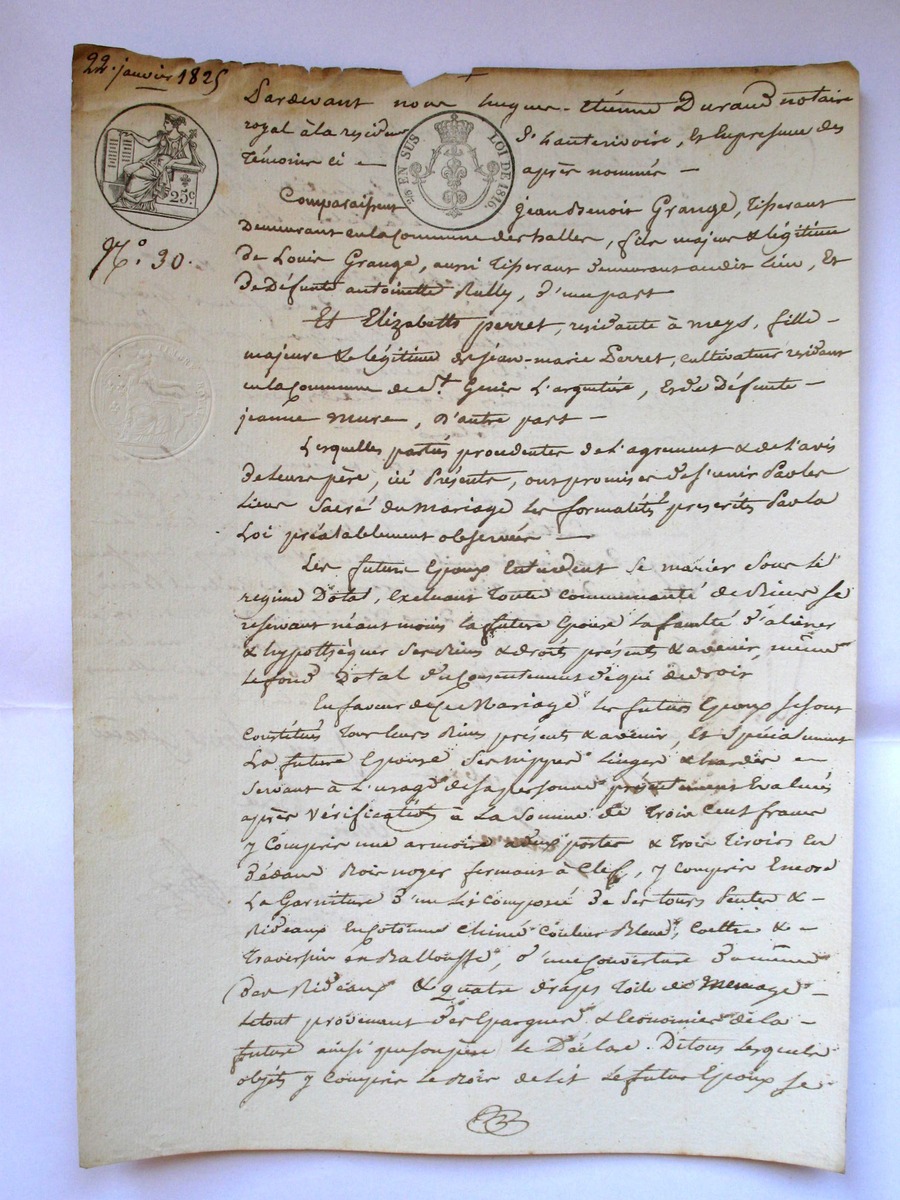 22. janvier 1825
Pardevant nous hugues-Etiénne Durand notaire
royal à la residence d'hauterivoire, et En presence des
Témoins ci- après nommés -
25 EN SUS LOI DE 1816.
25c
Comparaissent jean Benoit Grange, Tisserant
Demeurant en la Commune des halles, fils majeur & légitime
N.o 30.
de Louis Grange, aussi Tisserant demeurant audit lieu, Et
de Défunte antoinette Rully, d'une part
Et Elizabeth perret, residante à meys, fille
majeure & légitime de jean-marie Perret, cultivateur residant
en la Commune de St Genis L'argentière, Et de Défunte
jeanne mure, d'autre part -
Lesquelles parties procedentes de l'agrement & de l'avis
de leurs père, ici Présents, ont promis de s'unir Par les
liens Sacré du Mariage les formalités prescrites Par la
Loi préalablement observées -
Les futurs Epoux Entendent se marier sous le
regime Dotal, excluant Toute communauté de Biens se
reservant néantmoins la future Epouse la faculté d'aliéner
& hypothéquer ses Biens & droits présents & avenir, même
le fond Dotal du Consentement de qui de droit
En faveur de Ce Mariage les futurs Epoux se sont
Constitués Tous leurs Biens présents & avenir, Et Spécialement
La future Epouse ses nippes linges & hardes -
Servant à L'usage de sa personne présentement Evalués
après Vérification à La Somme de Trois Cent francs
y Compris une armoire à deux portes & Trois Tiroirs En
dedans Bois noyer fermant à Clef, y compris Encore
La Garniture d'un lit Composé de Ses Tours Pentes &
Rideaux En Cotonne Chiné Couleur Bleue, Coettre & -
Traversin en Ballouffe, d'une Couverture
Rideaux & quatre draps Toile de Menage -
le tout provenant des Epargnes & Economies de la -
future ainsi que son père le Déclare. De Tous lesquels
objets y Compris le Bois de lit le futur Epoux se